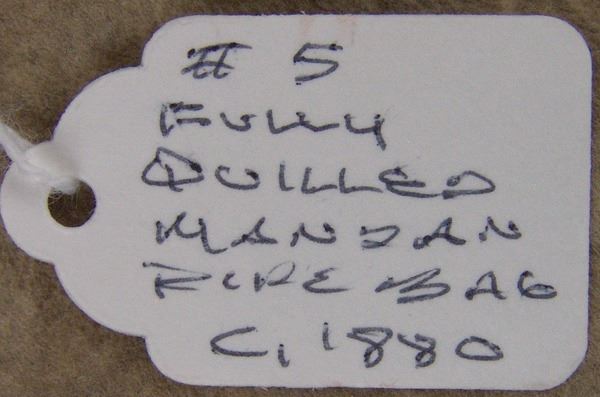 # 5
FULLY
QUILLED
MANDAN
PIPE BAG
C, 1880